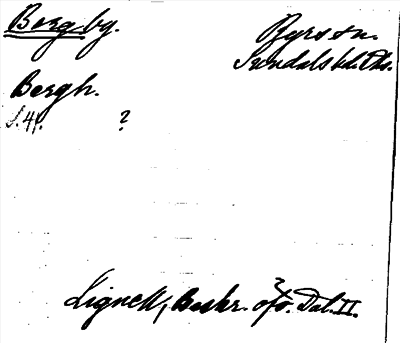 Bergby. Ryrs sn.
Sundals hd. Dls.
Bergh.
S. 41. ?
Lignell, Beskr. öfv. Dal. II.